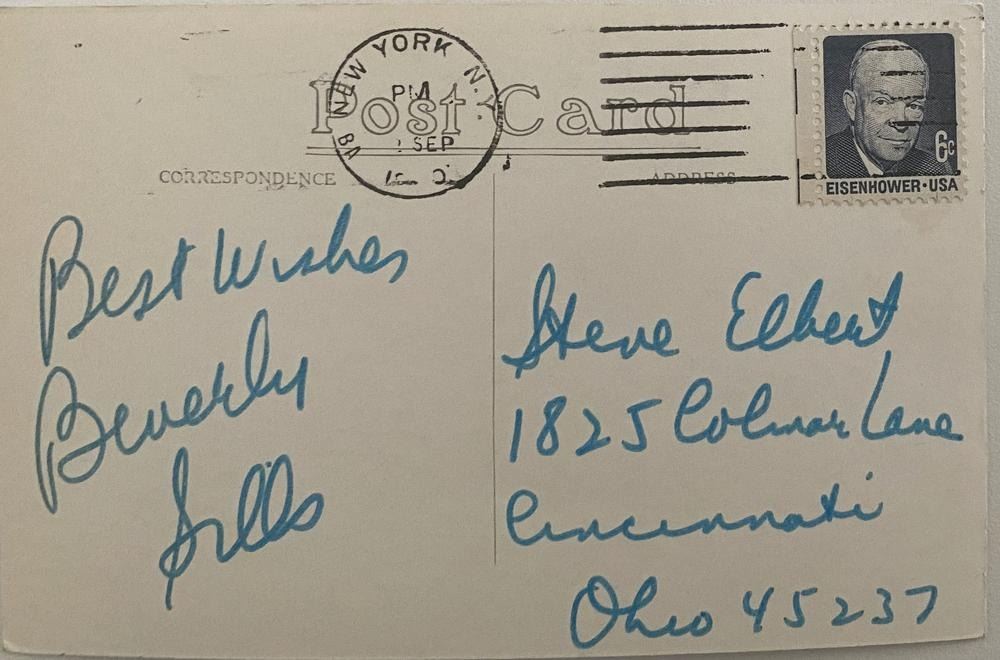 NEW YORK N.Y.
PM
SEP
Post Card
CORRESPONDENCE
ADDRESS
6c
EISENHOWER · USA
Best Wishes
Beverly
Sills
Steve Elbert
1825 Colmar Lane
Cincinnati
Ohio 45237